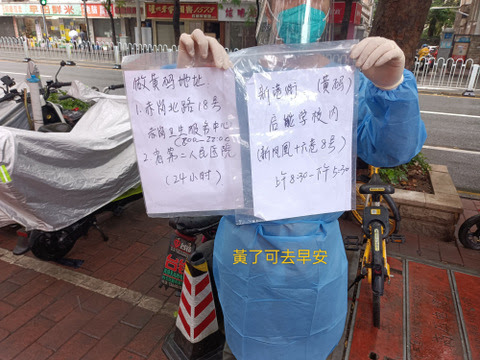 做黄码地址
1. 赤岗北路18号
赤岗卫生服务中心
(8:00-22:00)
2. 省第二人民医院
(24小时)
新港街 (黄码)
启能学校内
(新凤凰十六巷8号)
上午8:30-下午5:30
黃了可去早安